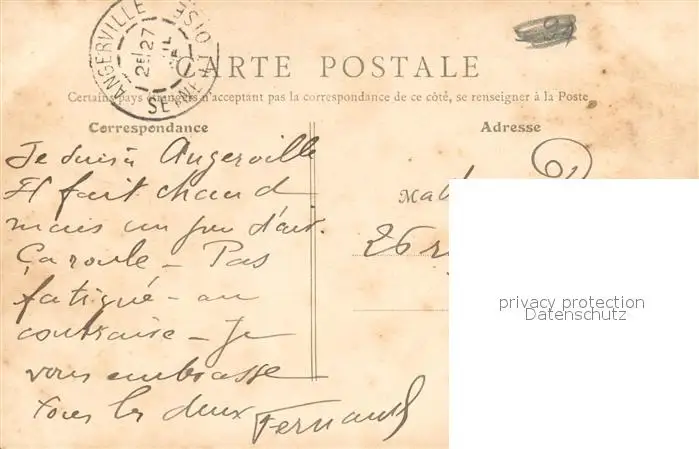 ANGERVILLE
SEINE-ET-OISE
27
CARTE POSTALE
Certains pays étrangers n'acceptant pas la correspondance de ce côté, se renseigner à la Poste
Correspondance
Adresse
Je suis à Angerville
Il fait chaud
mais un peu d'air.
Ça roule – Pas
fatigué – au
contraire – Je
vous embrasse
tous les deux
Fernand
M
26 r
privacy protection
Datenschutz